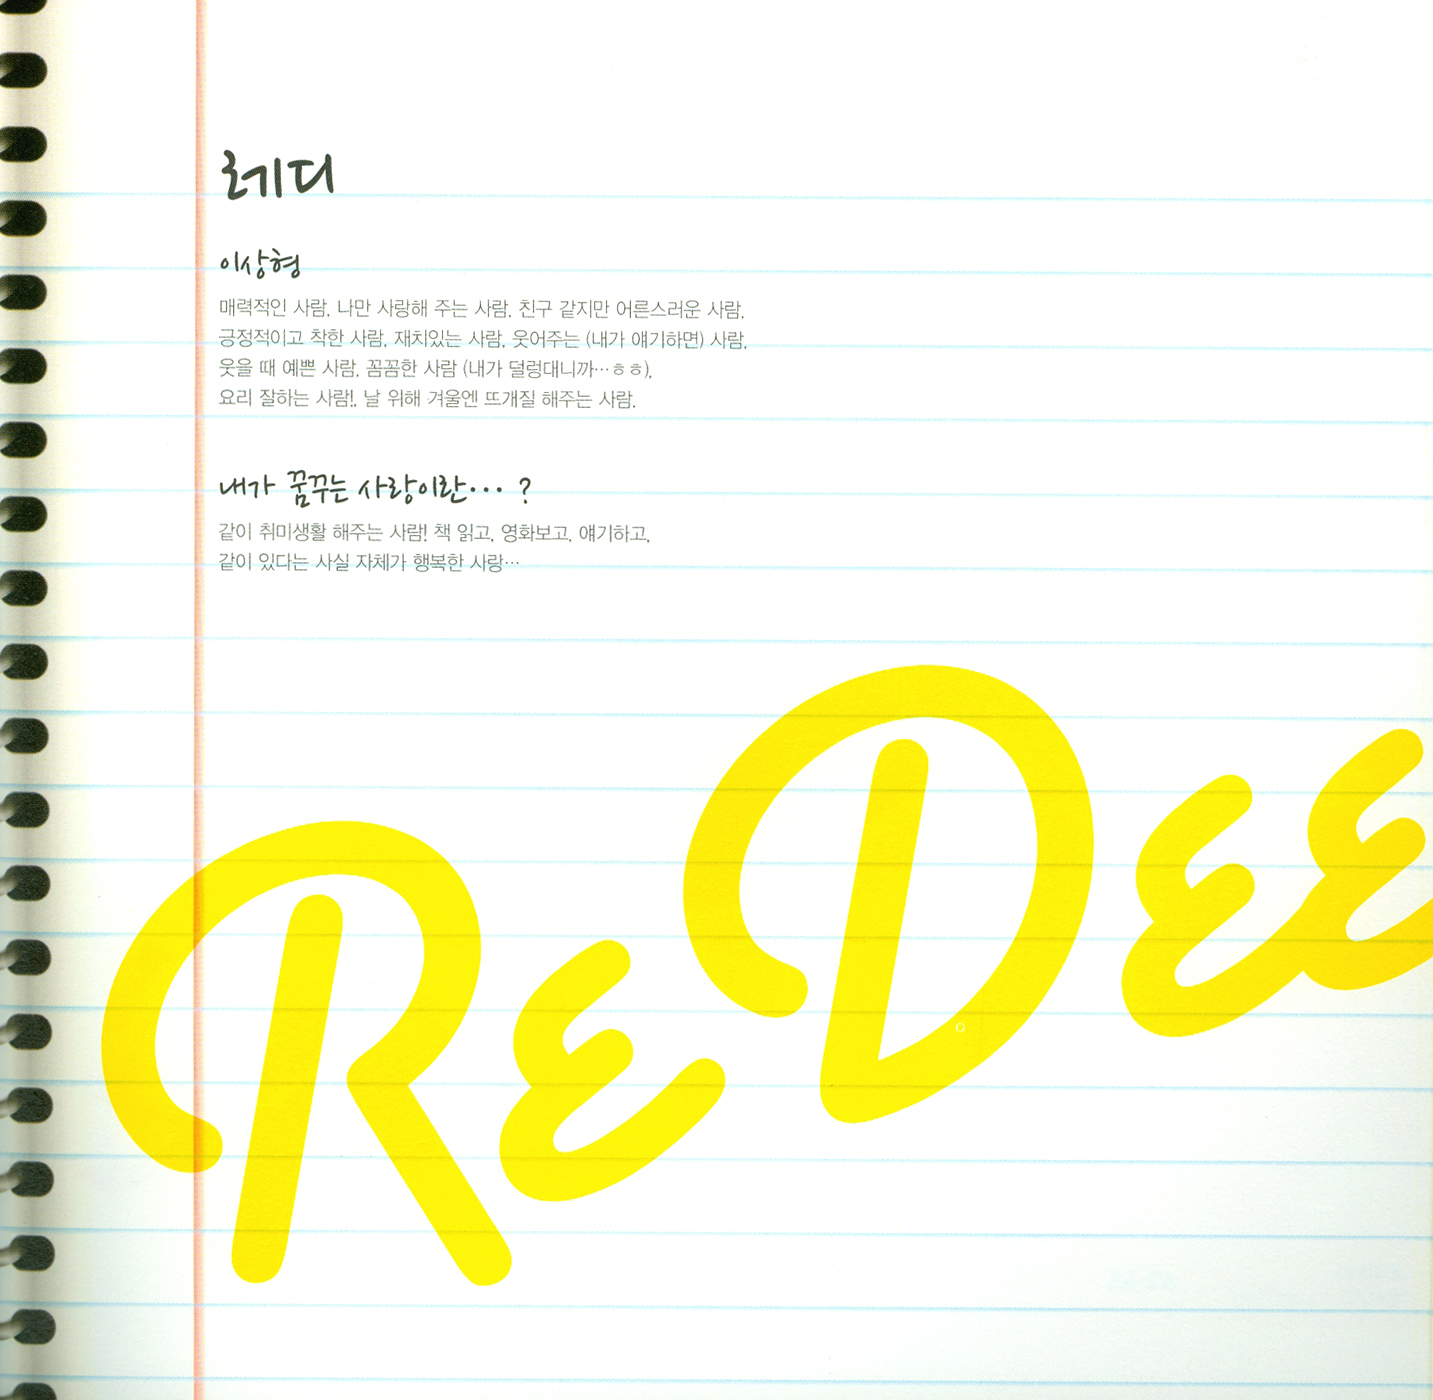 레디
이상형
매력적인 사람, 나만 사랑해 주는 사람, 친구 같지만 어른스러운 사람,
긍정적이고 착한 사람, 재치있는 사람, 웃어주는 (내가 얘기하면) 사람,
웃을 때 예쁜 사람, 꼼꼼한 사람 (내가 덜렁대니까…ㅎㅎ),
요리 잘하는 사람!, 날 위해 겨울엔 뜨개질 해주는 사람.
내가 꿈꾸는 사랑이란… ?
같이 취미생활 해주는 사람! 책 읽고, 영화보고, 얘기하고,
같이 있다는 사실 자체가 행복한 사랑…
REDEE